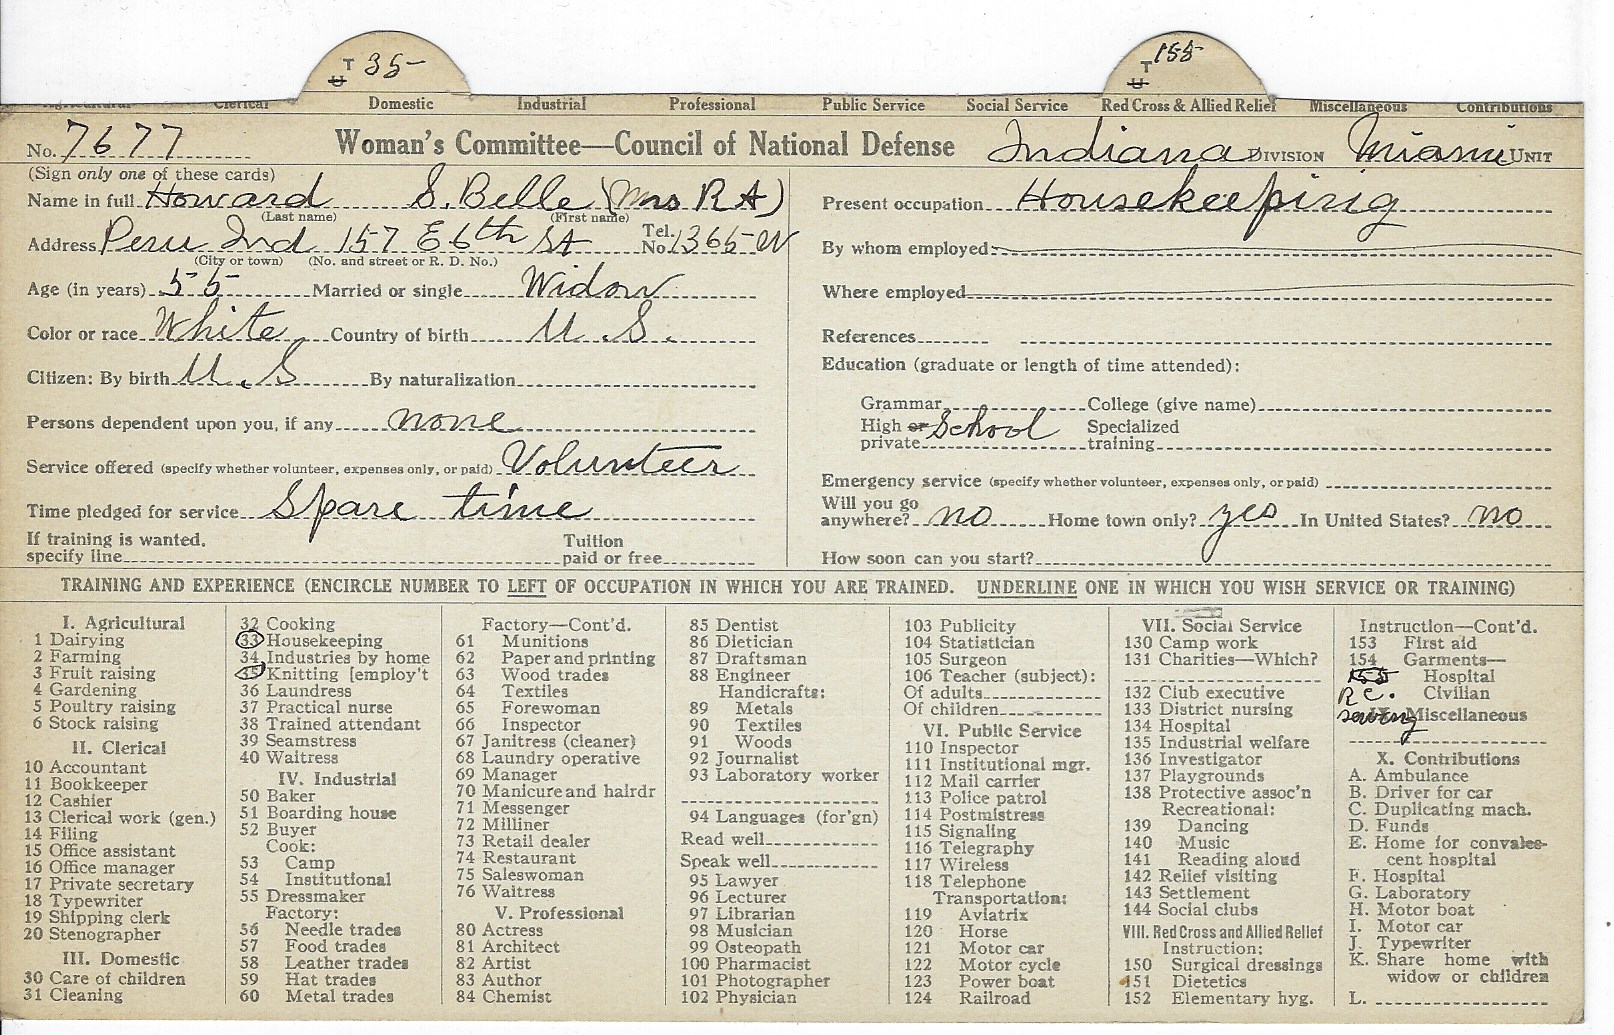 T 35
U
T 155
U
Agricultural Clerical Domestic Industrial Professional Public Service Social Service Red Cross & Allied Relief Miscellaneous Contributions
No. 7677 Woman's Committee—Council of National Defense Indiana DIVISION Miami UNIT
(Sign only one of these cards)
Name in full Howard S. Belle (Mrs R A)
(Last name) (First name)
Address Peru Ind 157 E 6th St Tel. No. 1365-W
(City or town) (No. and street or R. D. No.)
Age (in years) 55 Married or single Widow
Color or race White Country of birth U. S.
Citizen: By birth U. S By naturalization
Persons dependent upon you, if any none
Service offered (specify whether volunteer, expenses only, or paid) Volunteer
Time pledged for service Spare time
If training is wanted, specify line Tuition paid or free
Present occupation Housekeeping
By whom employed
Where employed
References
Education (graduate or length of time attended):
Grammar College (give name)
High or private School Specialized training
Emergency service (specify whether volunteer, expenses only, or paid)
Will you go anywhere? no Home town only? yes In United States? no
How soon can you start?
TRAINING AND EXPERIENCE (ENCIRCLE NUMBER TO LEFT OF OCCUPATION IN WHICH YOU ARE TRAINED. UNDERLINE ONE IN WHICH YOU WISH SERVICE OR TRAINING)
I. Agricultural
1 Dairying
2 Farming
3 Fruit raising
4 Gardening
5 Poultry raising
6 Stock raising
II. Clerical
10 Accountant
11 Bookkeeper
12 Cashier
13 Clerical work (gen.)
14 Filing
15 Office assistant
16 Office manager
17 Private secretary
18 Typewriter
19 Shipping clerk
20 Stenographer
III. Domestic
30 Care of children
31 Cleaning
32 Cooking
33 Housekeeping
34 Industries by home
35 Knitting [employ't
36 Laundress
37 Practical nurse
38 Trained attendant
39 Seamstress
40 Waitress
IV. Industrial
50 Baker
51 Boarding house
52 Buyer
Cook:
53 Camp
54 Institutional
55 Dressmaker
Factory:
56 Needle trades
57 Food trades
58 Leather trades
59 Hat trades
60 Metal trades
Factory—Cont'd.
61 Munitions
62 Paper and printing
63 Wood trades
64 Textiles
65 Forewoman
66 Inspector
67 Janitress (cleaner)
68 Laundry operative
69 Manager
70 Manicure and hairdr
71 Messenger
72 Milliner
73 Retail dealer
74 Restaurant
75 Saleswoman
76 Waitress
V. Professional
80 Actress
81 Architect
82 Artist
83 Author
84 Chemist
85 Dentist
86 Dietician
87 Draftsman
88 Engineer
Handicrafts:
89 Metals
90 Textiles
91 Woods
92 Journalist
93 Laboratory worker
94 Languages (for'gn)
Read well
Speak well
95 Lawyer
96 Lecturer
97 Librarian
98 Musician
99 Osteopath
100 Pharmacist
101 Photographer
102 Physician
103 Publicity
104 Statistician
105 Surgeon
106 Teacher (subject):
Of adults
Of children
VI. Public Service
110 Inspector
111 Institutional mgr.
112 Mail carrier
113 Police patrol
114 Postmistress
115 Signaling
116 Telegraphy
117 Wireless
118 Telephone
Transportation:
119 Aviatrix
120 Horse
121 Motor car
122 Motor cycle
123 Power boat
124 Railroad
VII. Social Service
130 Camp work
131 Charities—Which?
132 Club executive
133 District nursing
134 Hospital
135 Industrial welfare
136 Investigator
137 Playgrounds
138 Protective assoc'n
Recreational:
139 Dancing
140 Music
141 Reading aloud
142 Relief visiting
143 Settlement
144 Social clubs
VIII. Red Cross and Allied Relief
Instruction:
150 Surgical dressings
151 Dietetics
152 Elementary hyg.
Instruction—Cont'd.
153 First aid
154 Garments—
155 Hospital
R C. Civilian
sewing IX. Miscellaneous
X. Contributions
A. Ambulance
B. Driver for car
C. Duplicating mach.
D. Funds
E. Home for convalescent hospital
F. Hospital
G. Laboratory
H. Motor boat
I. Motor car
J. Typewriter
K. Share home with widow or children
L.